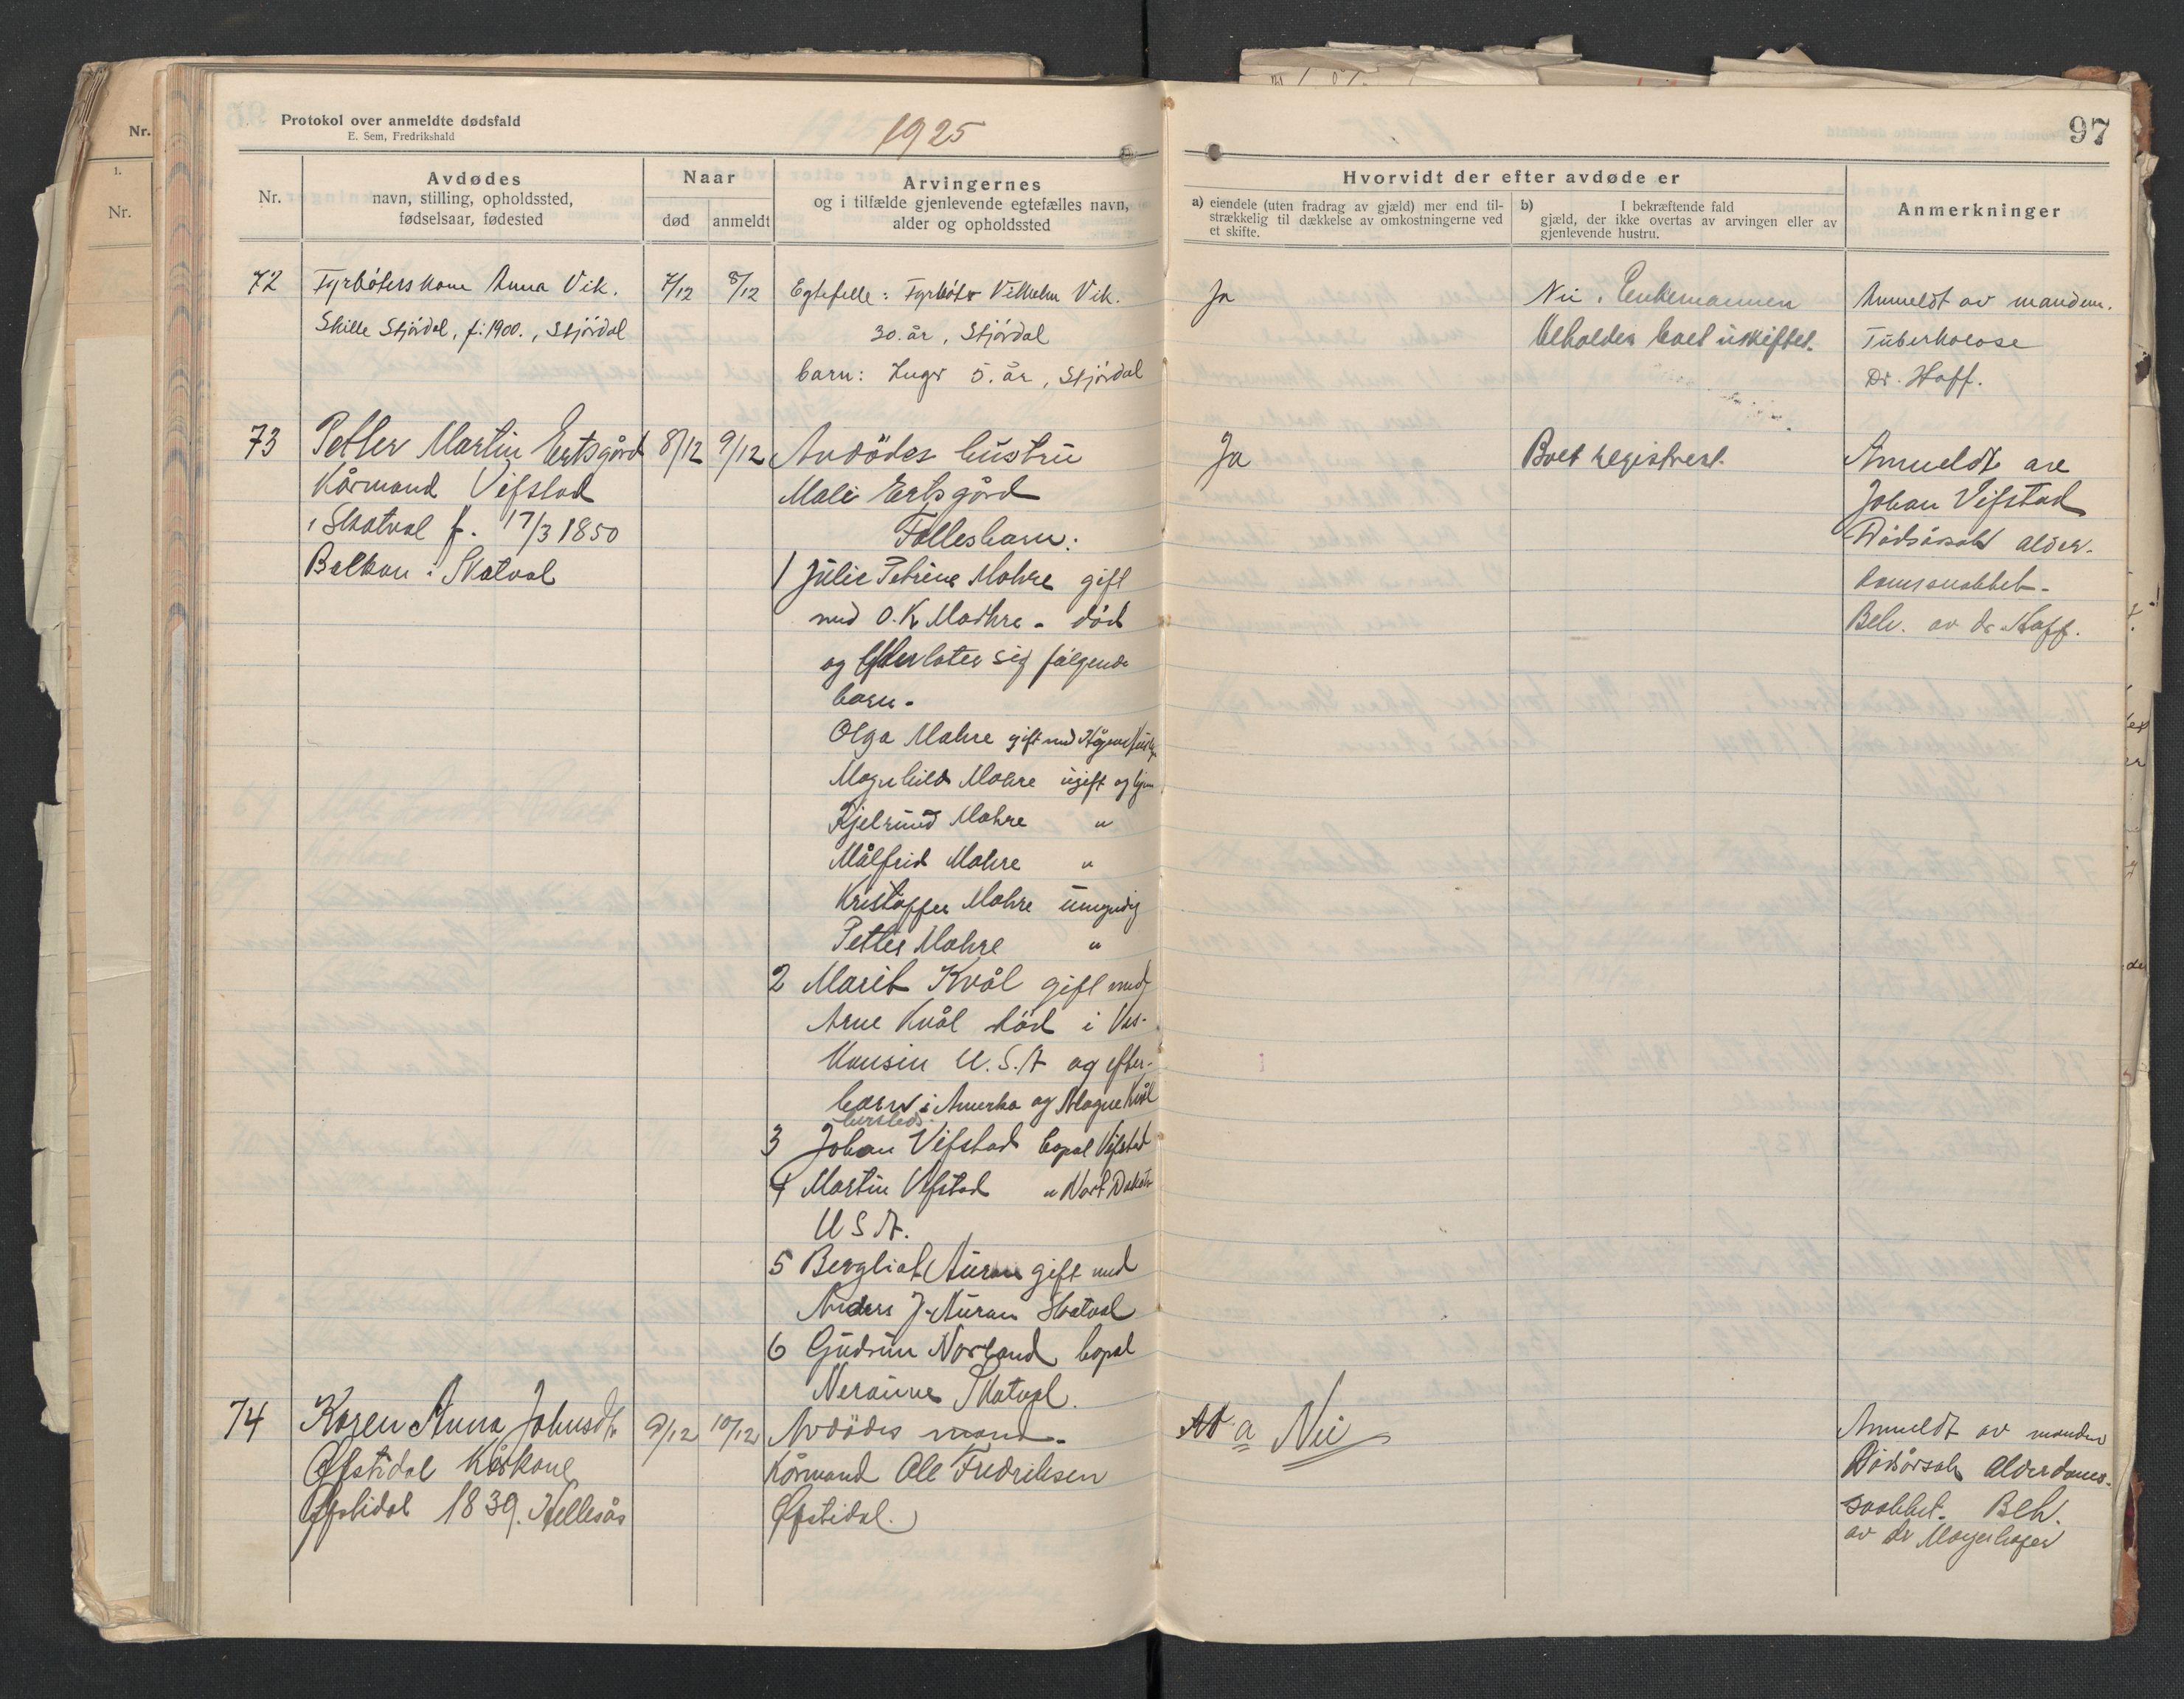 Nr.
1.
Nr.
Protokol over anmeldte dødsfald
E. Sem, Fredrikshald
1925
97
Nr.
Avdødes
navn, stilling, opholdssted,
fødselsaar, fødested
Naar
død
anmeldt
Arvingernes
og i tilfælde gjenlevende egtefælles navn,
alder og opholdssted
Hvorvidt der efter avdøde er
a) eiendele (uten fradrag av gjæld) mer end til-
strækkelig til dækkelse av omkostningerne ved
et skifte.
b) I bekræftende fald
gjæld, der ikke overtas av arvingen eller av
gjenlevende hustru.
Anmerkninger
72
Fyrbøters kone Anna Vik.
Skille Stjördal, f. 1900., Stjördal
7/12
8/12
Egtefelle: Fyrbøter Vilhelm Vik.
30. år, Stjördal
barn: Inger 5. år, Stjördal
Ja
Nei. Enkemannen
beholder boet uskiftet.
Anmeldt av manden.
Tuberkolose
Dr. Hoff.
73
Petter Martin Ertsgård
Kårmand Vifstad
i Skatval f. 17/3 1850
Balkan i Skatval
8/12
9/12
Avdödes hustru
Mali Ertsgård
Fellesbarn:
1 Julie Petrine Mahre gift
med O. K. Mahre - död
og efterlater sig følgende
barn -
Olga Mahre gift med
Magnhild Mahre ugift og hjem
Kjelrund Mahre "
Målfrid Mahre "
Kristoffer Mahre umyndig
Petter Mahre "
2 Marit Kvål gift med
Arne Kvål död i Vis-
konsin U.S.A og efter-
barn i Amerka og Magne Kvål
3 Johan Vifstad bopal Vifstad
4 Martin Vifstad " Nort Dakota
U S A.
5 Bergliot Auran gift med
Anders J. Auran Skatval
6 Gudrun Norland bopal
Neraune Skatval.
Ja
Boet registrert.
Anmeldt ave
Johan Vifstad
Dødsårsak alder-
domssvakhet -
Beh. av dr. Hoff.
74
Karen Anna Johnsdt.
Øfstidal Kårkone
Øfstidal 1839. Hellesås
9/12
10/12
Avdödes mand -
Kårmand Ole Fredriksen
Øfstidal.
Ad a Nei
Anmeldt av manden
Dødsårsak Alderdoms-
svakhet. Beh.
av dr Mogelhofer